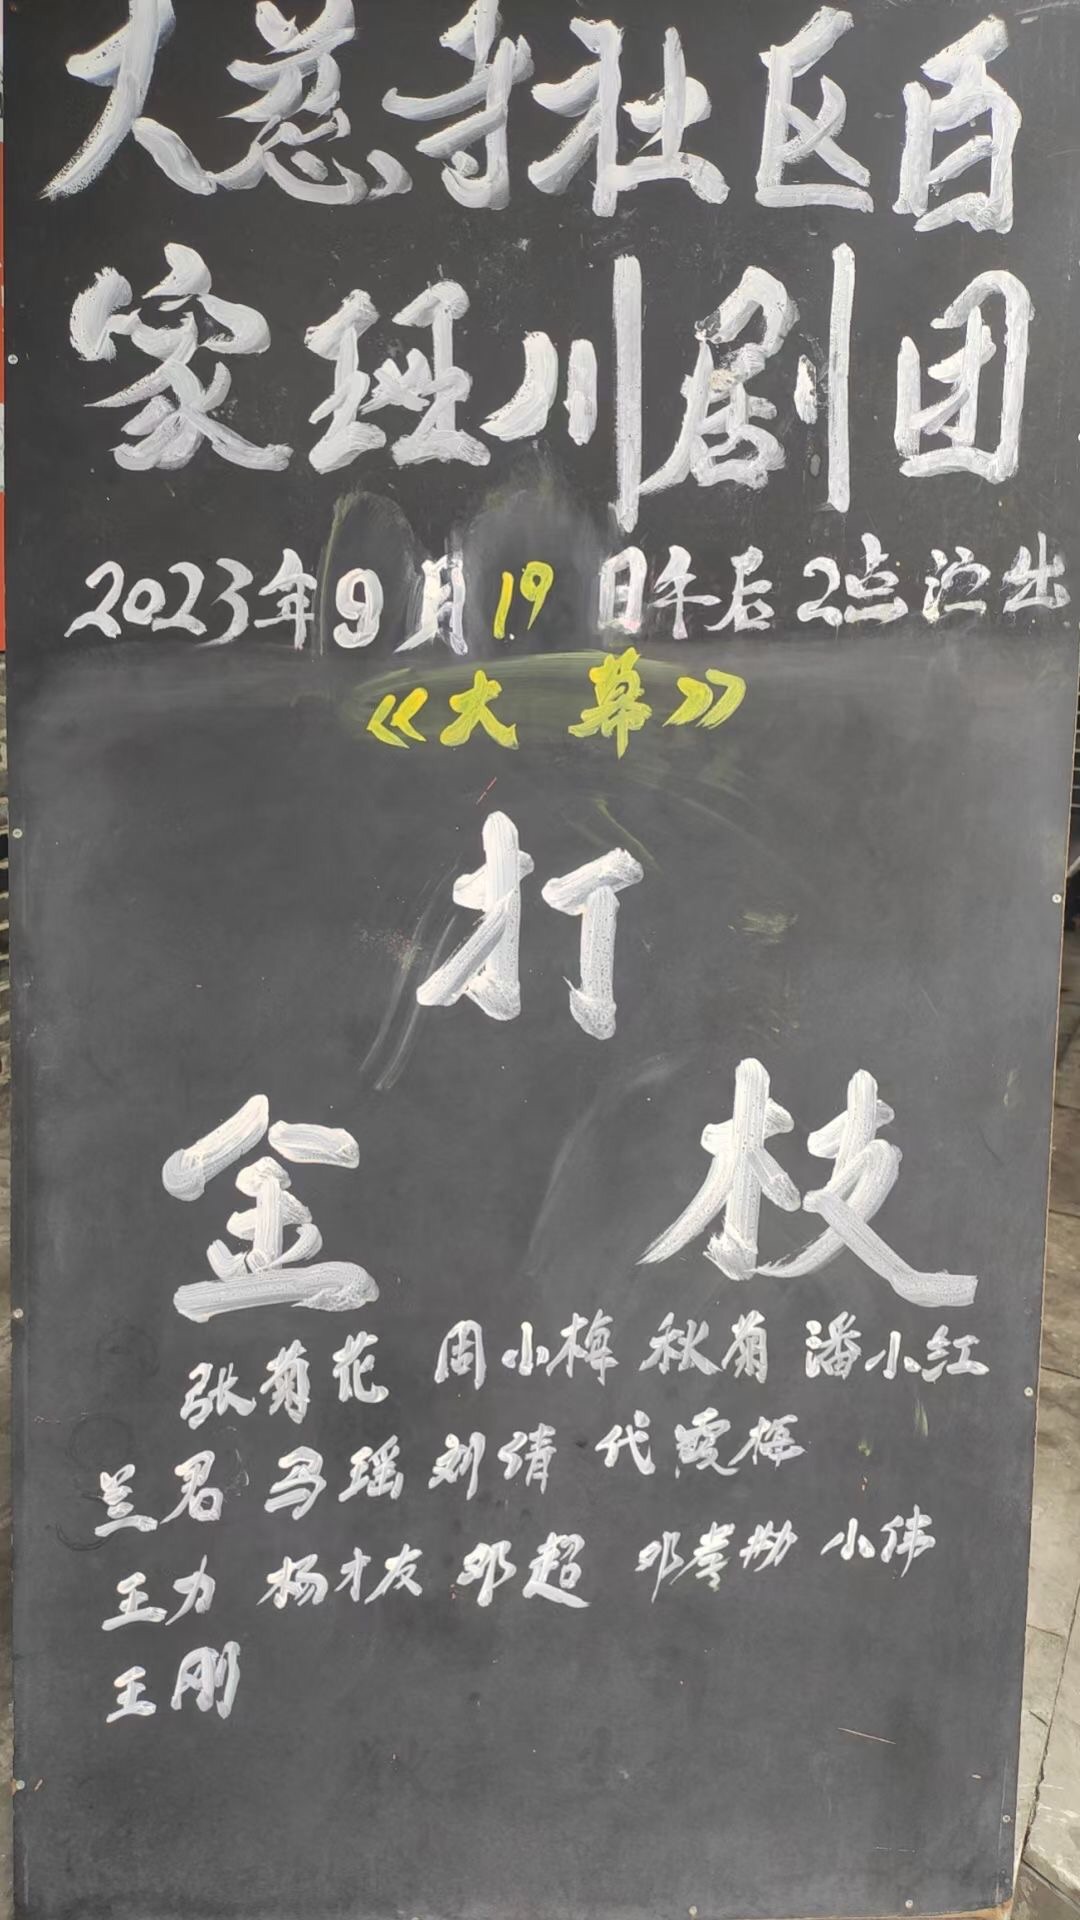 大慈寺社区百
家班川剧团
2023年9月19日午后2点演出
《大幕》
打
金 枝
张菊花 周小梅 秋菊 潘小红
兰君 马瑶 刘倩 代霞梅
王力 杨才友 邓超 邓孝勋 小伟
王刚